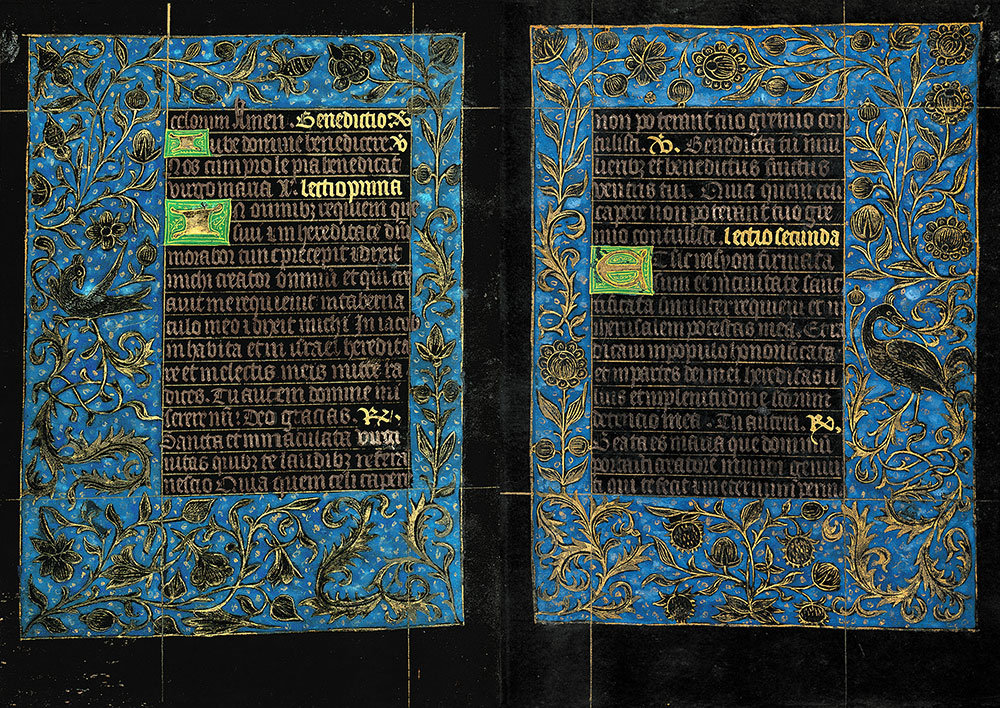 celorum Amen. Benedictio R
Iube domine benedicere. V
Nos cum prole pia benedicat
virgo maria R. lectio prima
In omnibz requiem que
siui i in hereditate dni
morabor tunc precepit i dixit
michi creator omniū et qui cre
auit me requieuit in taberna
culo meo i dixit michi In iacob
inhabita et in israel heredita
re et in electis meis mitte ra
dices. Tu autem domine mi
serere nri Deo gracias. R.
Sancta et inmaculata virgi
nitas quibz te laudibz refera
nescio Quia quem celi capere
non poterant tuo gremio con
tulisti. V. Benedicta tu in mu
lieribz et benedictus fructus
ventris tui. Quia quem celi
capere non poterant tuo gre
mio contulisti. lectio secunda
Et sic in syon firmata
sum et in ciuitate sanc
tificata similiter requieui et in
iherusalem potestas mea. Et ra
dicaui in populo honorificato
et in partes dei mei hereditas il
lius et in plenitudine sanctor
detencio mea. Tu autem. R.
Beata es maria que dominū
portasti creatorē mundi genui
sti qui te fecit i in eternum perma